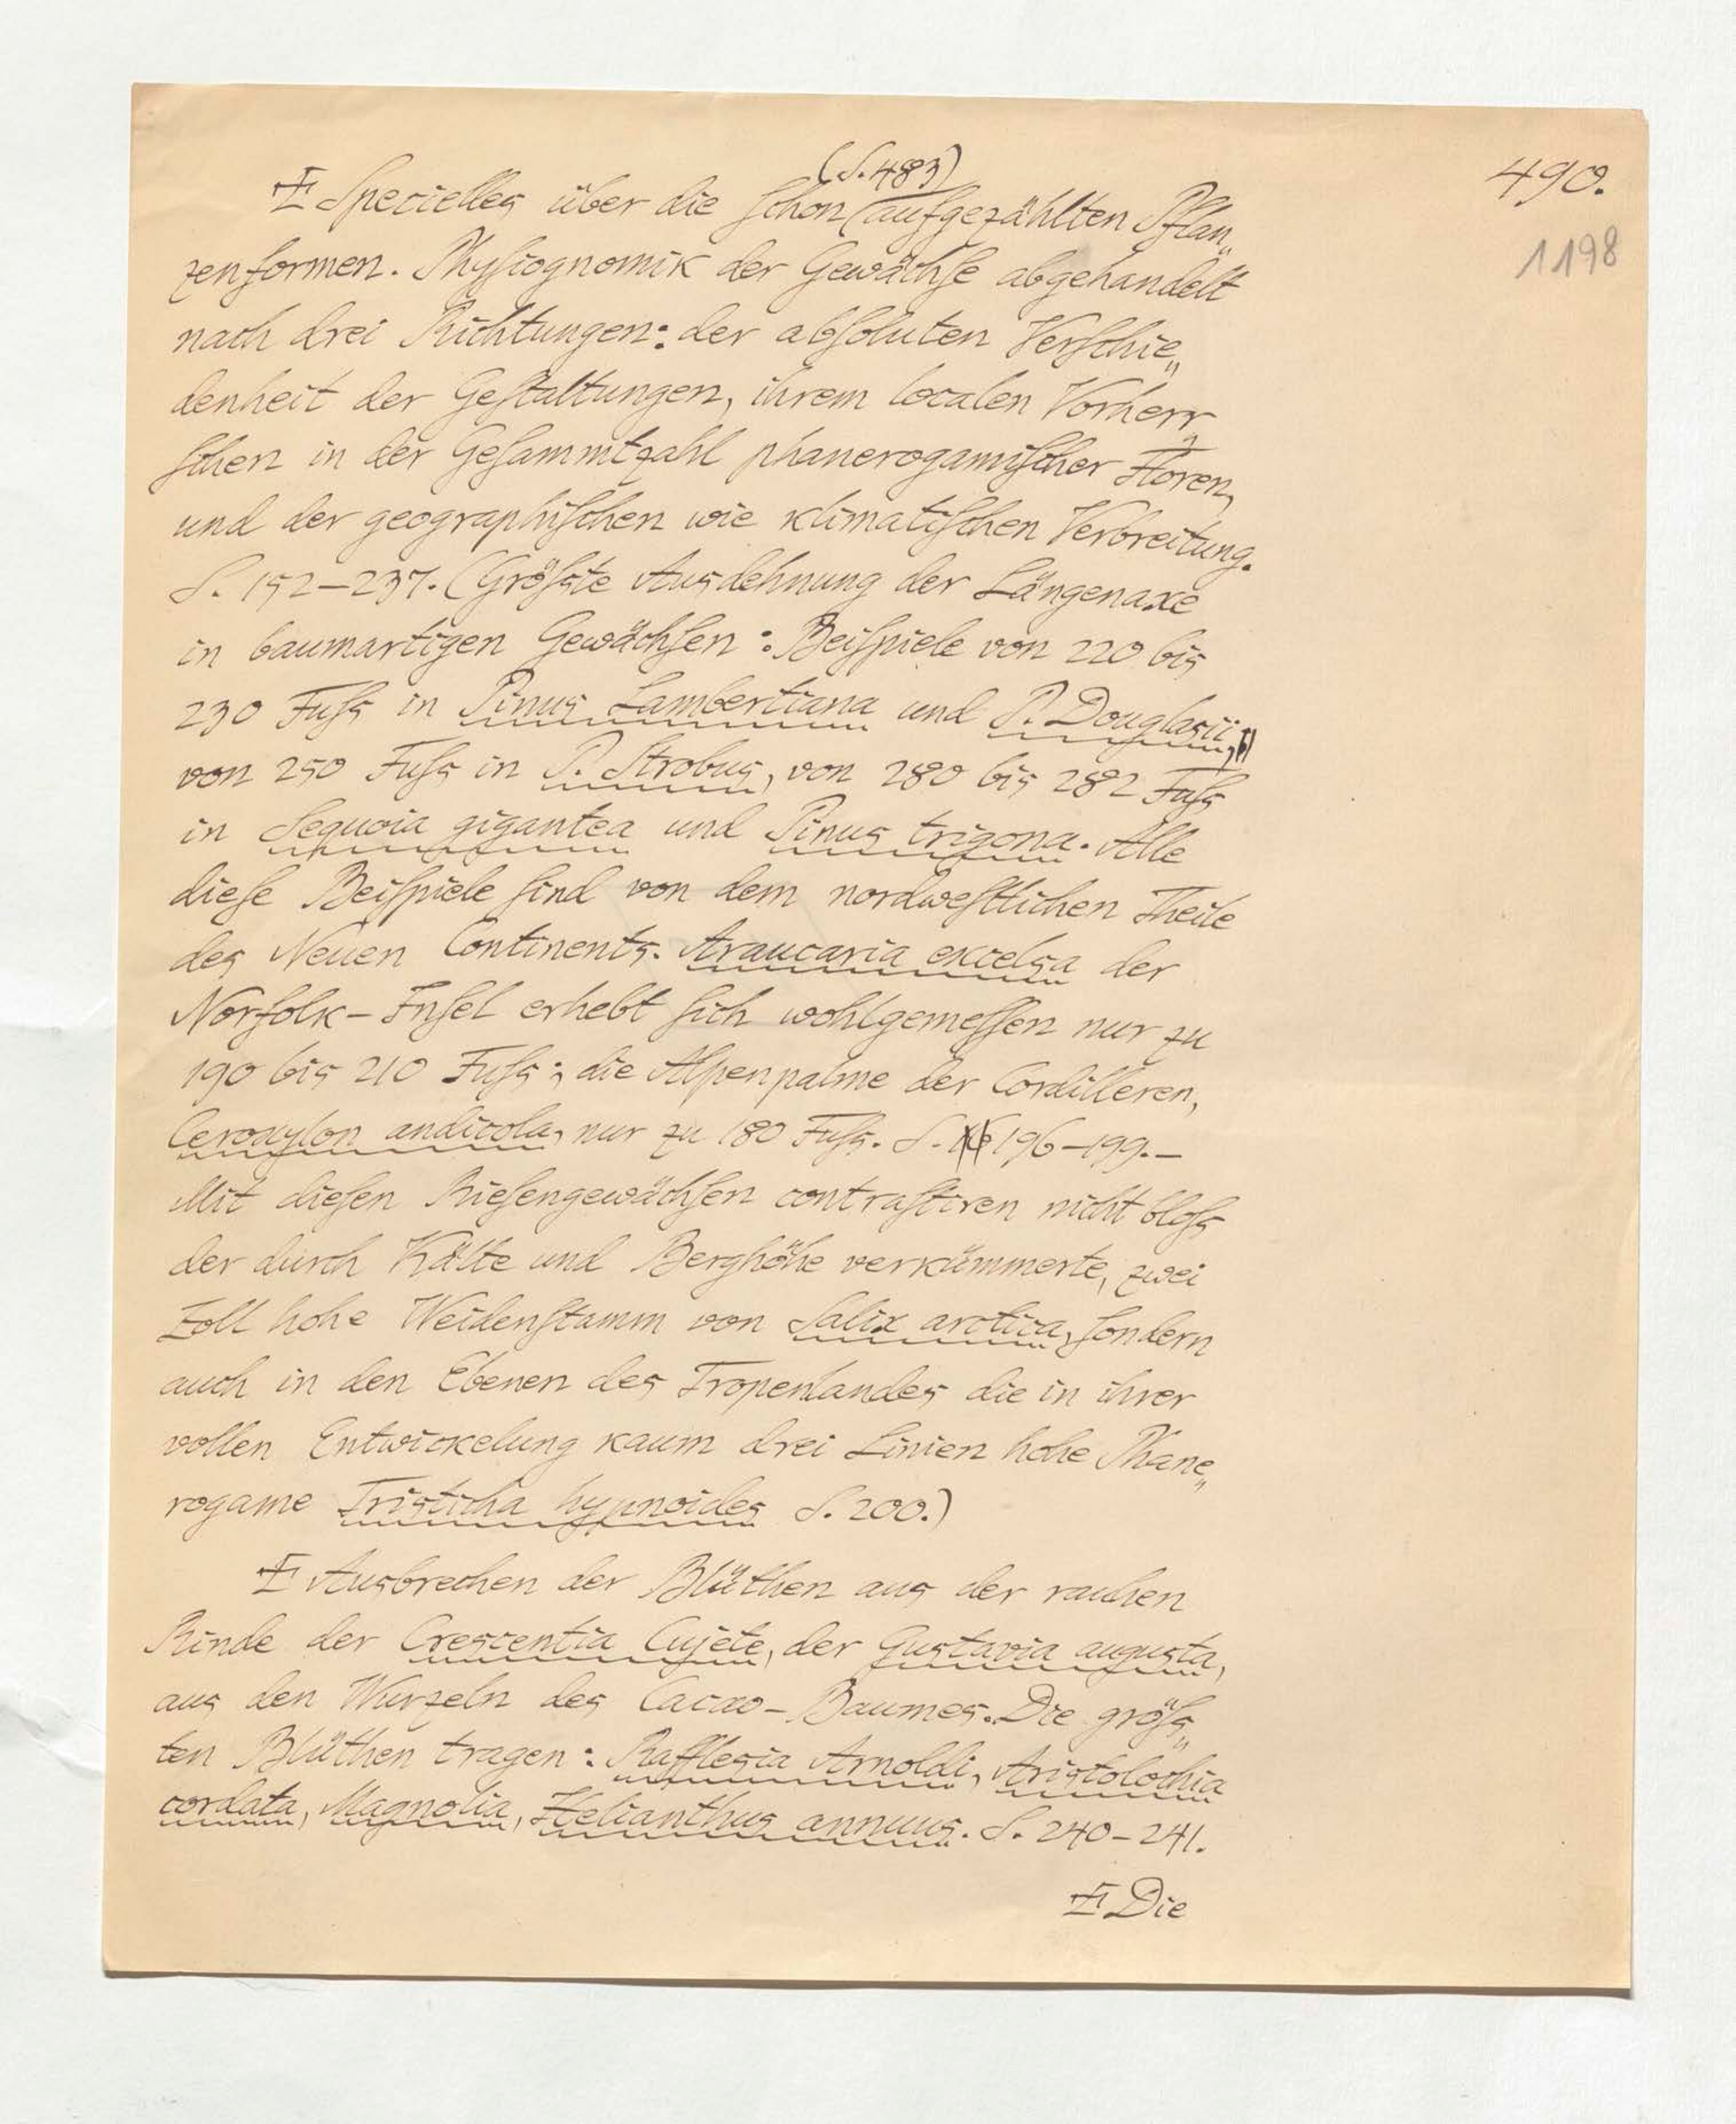 490.
1198
(S. 483)
Ɪ Specielles über die ſchon aufgezählten Pflan„
zenformen. Phyſiognomik der Gewächſe abgehandelt
nach drei Richtungen: der abſoluten Verſchie„
denheit der Geſtaltungen, ihrem localen Vorherr
ſchen in der Geſammtzahl phanerogamiſcher Floren,
und der geographiſchen wie klimatiſchen Verbreitung.
S. 152–237. (Gröſste Ausdehnung der Längenaxe
in baumartigen Gewächſen: Beiſpiele von 220 bis
230 Fuſs in Pinus Lambertiana und P. Douglasii,
von 250 Fuſs in P. Strobus, von 280 bis 282 Fuſs
in Sequoia gigantea und Pinus trigona. Alle
dieſe Beiſpiele ſind von dem nordweſtlichen Theile
des Neuen Continents. Araucaria excelsa der
Norfolk-Inſel erhebt ſich wohlgemeſſen nur zu
190 bis 210 Fuſs; die Alpenpalme der Cordilleren,
Ceroxylon andicola, nur zu 180 Fuſs. S. 196–199.–
Mit dieſen Rieſengewächſen contraſtiren nicht bloſs
der durch Kälte und Berghöhe verkümmerte, zwei
Zoll hohe Weidenſtamm von Salix arctica, ſondern
auch in den Ebenen des Tropenlandes die in ihrer
vollen Entwickelung kaum drei Linien hohe Phane„
rogame Tristicha hypnoides S. 200.)
Ɪ Ausbrechen der Blüthen aus der rauhen
Rinde der Crescentia Cujete, der Gustavia augusta,
aus den Wurzeln des Cacao-Baumes. Die gröſs„
ten Blüthen tragen: Rafflesia Arnoldi, Aristolochia
cordata, Magnolia, Helianthus annuus. S. 240–241.
Ɪ Die